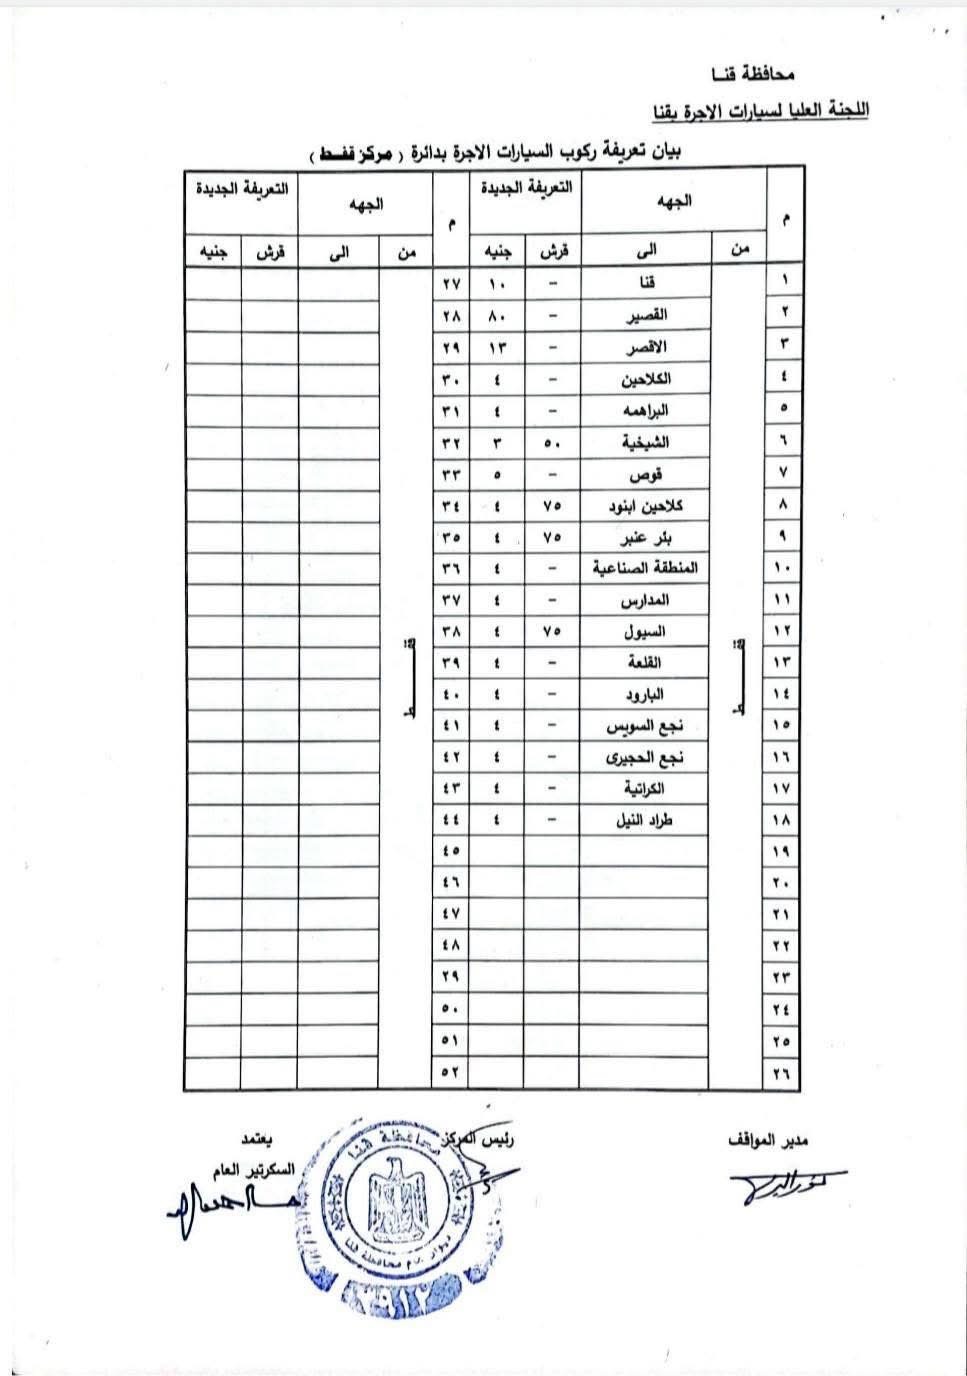 محافظة قنا
اللجنة العليا لسيارات الاجرة بقنا
بيان تعريفة ركوب السيارات الاجرة بدائرة ( مركز قفط )
م الجهه التعريفة الجديدة م الجهه التعريفة الجديدة
من الى قرش جنيه من الى قرش جنيه
١ قنا - ١٠ ٢٧
٢ القصير - ٨٠ ٢٨
٣ الاقصر - ١٣ ٢٩
٤ الكلاحين - ٤ ٣٠
٥ البراهمه - ٤ ٣١
٦ الشيخية ٥٠ ٣ ٣٢
٧ قوص - ٥ ٣٣
٨ كلاحين ابنود ٧٥ ٤ ٣٤
٩ بئر عنبر ٧٥ ٤ ٣٥
١٠ المنطقة الصناعية - ٤ ٣٦
١١ المدارس - ٤ ٣٧
١٢ السيول ٧٥ ٤ ٣٨
قفــــط قفــــط
١٣ القلعة - ٤ ٣٩
١٤ البارود - ٤ ٤٠
١٥ نجع السويس - ٤ ٤١
١٦ نجع الحجيرى - ٤ ٤٢
١٧ الكراتية - ٤ ٤٣
١٨ طراد النيل - ٤ ٤٤
١٩ ٤٥
٢٠ ٤٦
٢١ ٤٧
٢٢ ٤٨
٢٣ ٢٩
٢٤ ٥٠
٢٥ ٥١
٢٦ ٥٢
مدير المواقف رئيس المركز يعتمد
السكرتير العام
محافظة قنا
ديوان عام محافظة قنا